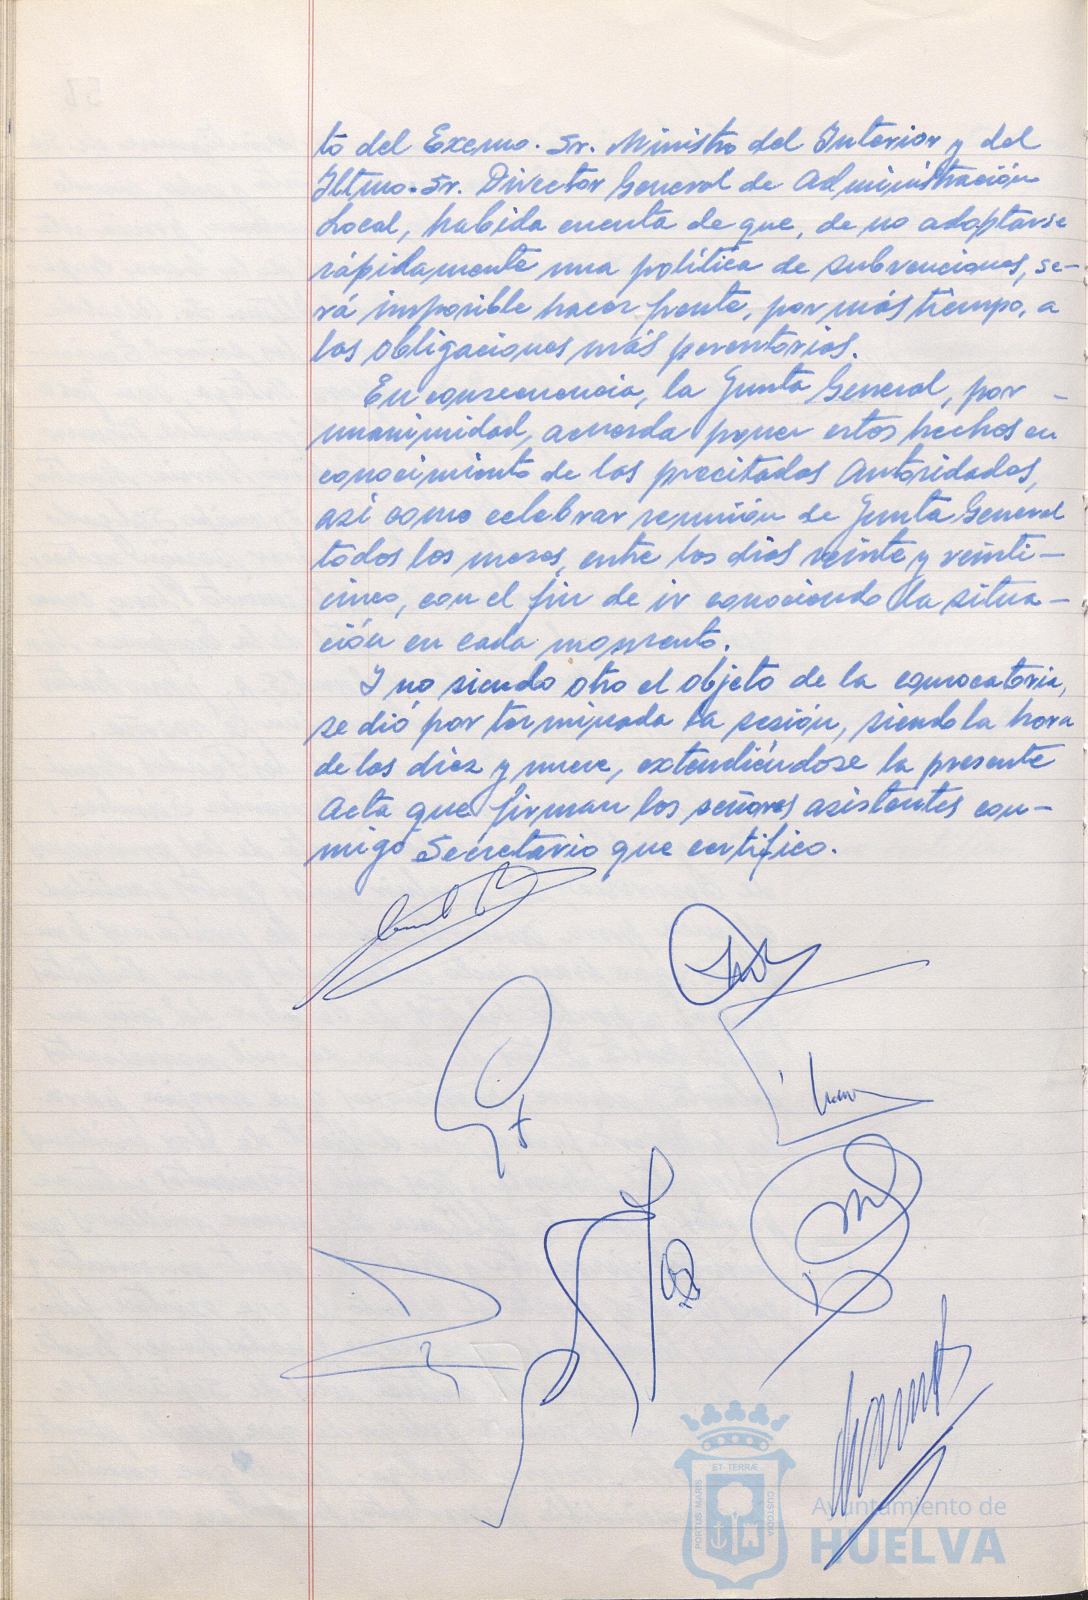 to del Excmo. Sr. Ministro del Interior y del
Iltmo. Sr. Director General de Administración
Local, habida cuenta de que, de no adoptarse
rápidamente una política de subvenciones, se-
rá imposible hacer frente, por más tiempo, a
las obligaciones más perentorias.
En consecuencia, la Junta General, por
unanimidad, acuerda poner estos hechos en
conocimiento de las precitadas Autoridades,
así como celebrar reunión de Junta General
todos los meses, entre los días veinte y veinti-
cinco, con el fin de ir conociendo la situa-
ción en cada momento.
Y no siendo otro el objeto de la convocatoria,
se dió por terminada la sesión, siendo la hora
de las diez y nueve, extendiéndose la presente
Acta que firman los señores asistentes con-
migo Secretario que certifico.
ET·TERRÆ
PORTUS MARIS
CUSTODIA
Ayuntamiento de
HUELVA